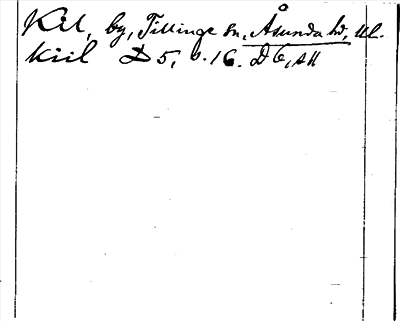 Kil, by, Tillinge sn, Åsunda hd, Upl.
Kiil D 5, s. 16. D 6, s 11